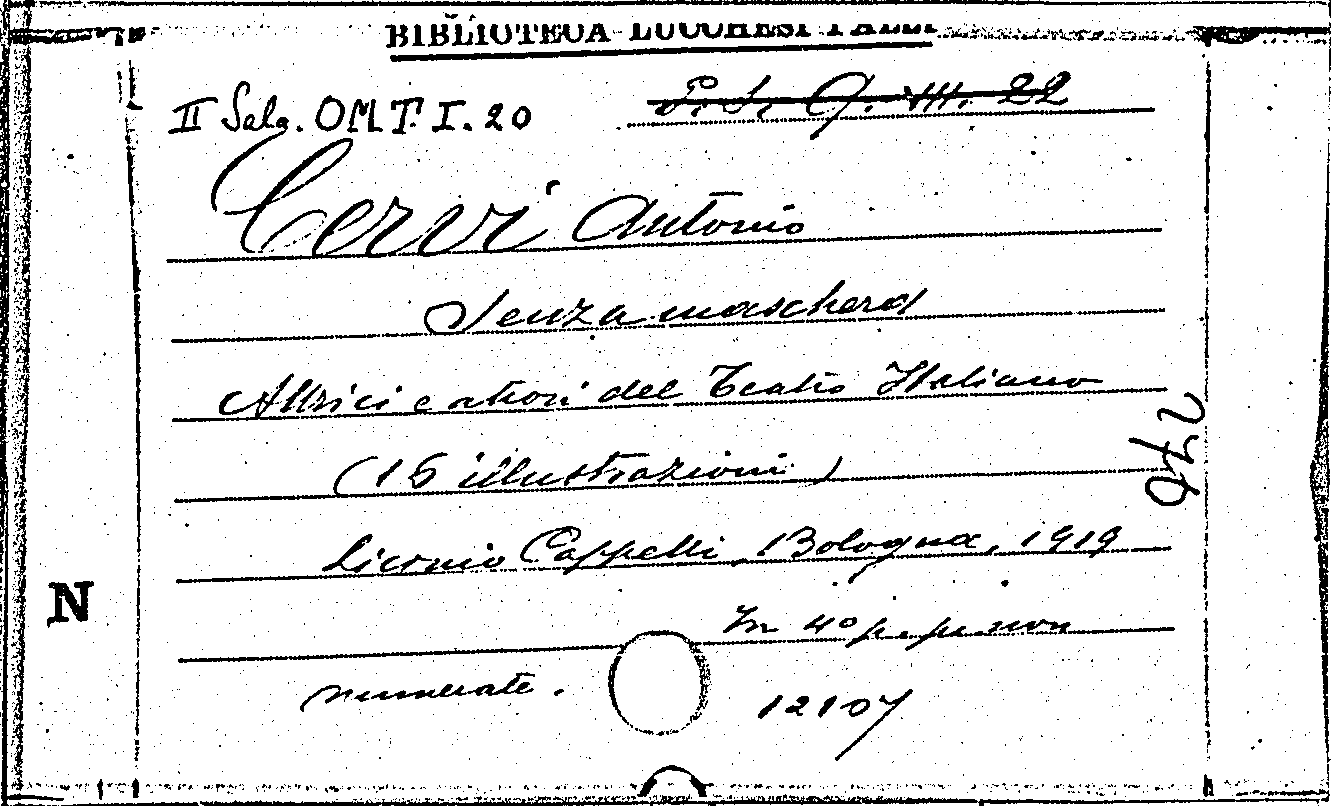 BIBLIOTECA LUCCHESI PALLI
II Sala. O.M.T. I. 20
P. S. G. VIII. 22
Cervi Antonio
Senza maschera
Attrici e attori del Teatro Italiano
(16 illustrazioni)
Licinio Cappelli, Bologna, 1919
In 4° p. p. non
numerate.
12107
N